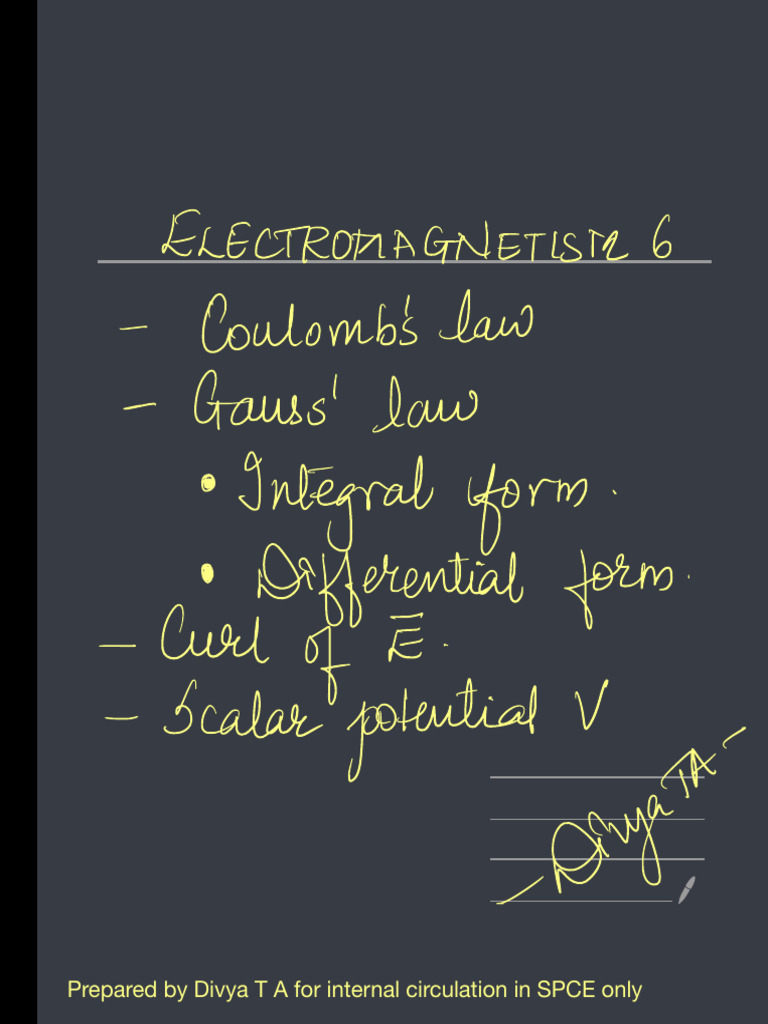 ELECTROMAGNETISM 6
- Coulomb's law
- Gauss' law
• Integral form.
• Differential form.
- Curl of E̅.
- Scalar potential V
- Divya TA -
Prepared by Divya T A for internal circulation in SPCE only